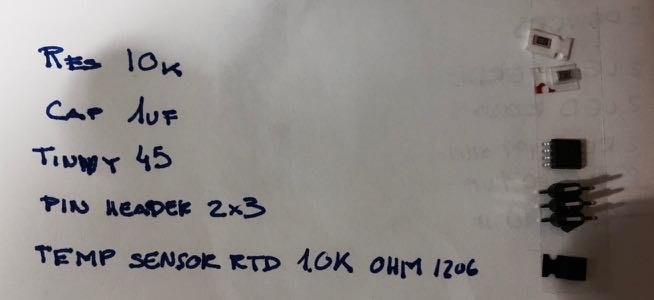 RES 10K
CAP 1UF
TINNY 45
PIN HEADER 2x3
TEMP SENSOR RTD 1.0K OHM 1206